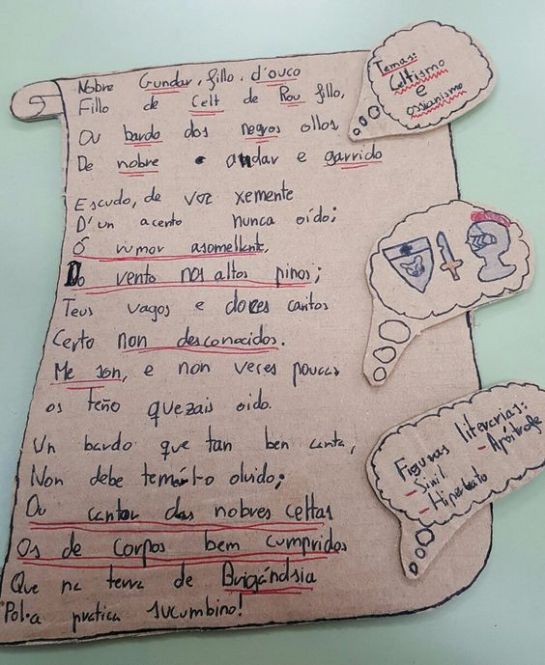 Nobre Gundar, fillo d'ouco
Fillo de Celt de Rou fillo,
Ou bardo dos negros ollos
De nobre andar e garrido
Escudo, de voz xemente
D'un acento nunca oído;
Ó rumor asomellente,
Do vento nos altos pinos;
Teus vagos e doces cantos
Certo non desconocidos.
Me son, e non veces poucas
os teño quezais oido.
Un bardo que tan ben canta,
Non debe temer o olvido;
Ou cantor das nobres celtas
Os de corpos bem cumpridos
Que na terra de Brigándsia
Pol-a patria sucumbino!
Temas:
Celtismo
e
ossianismo
Figuras literarias:
- Símil - Apóstrofe
- Hiperbato